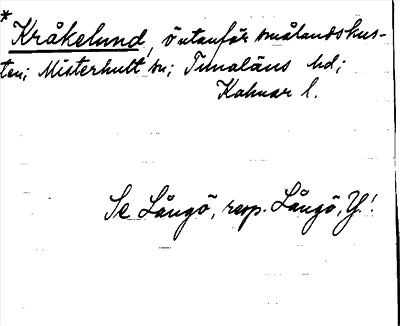 *
Kråkelund, ö utanför smålandskus-
ten; Misterhult sn; Tunaläns hd;
Kalmar l.
Se Långö, resp. Långö, Y!